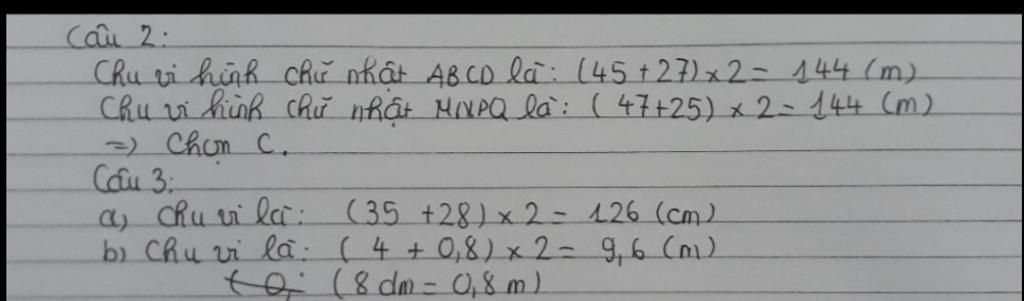 Câu 2:
Chu vi hình chữ nhật ABCD là: (45 + 27) × 2 = 144 (m)
Chu vi hình chữ nhật MNPQ là: (47+25) × 2 = 144 (m)
=) Chọn C.
Câu 3:
a) Chu vi là: (35 + 28) × 2 = 126 (cm)
b) Chu vi là: (4 + 0,8) × 2 = 9,6 (m)
(8 dm = 0,8 m)